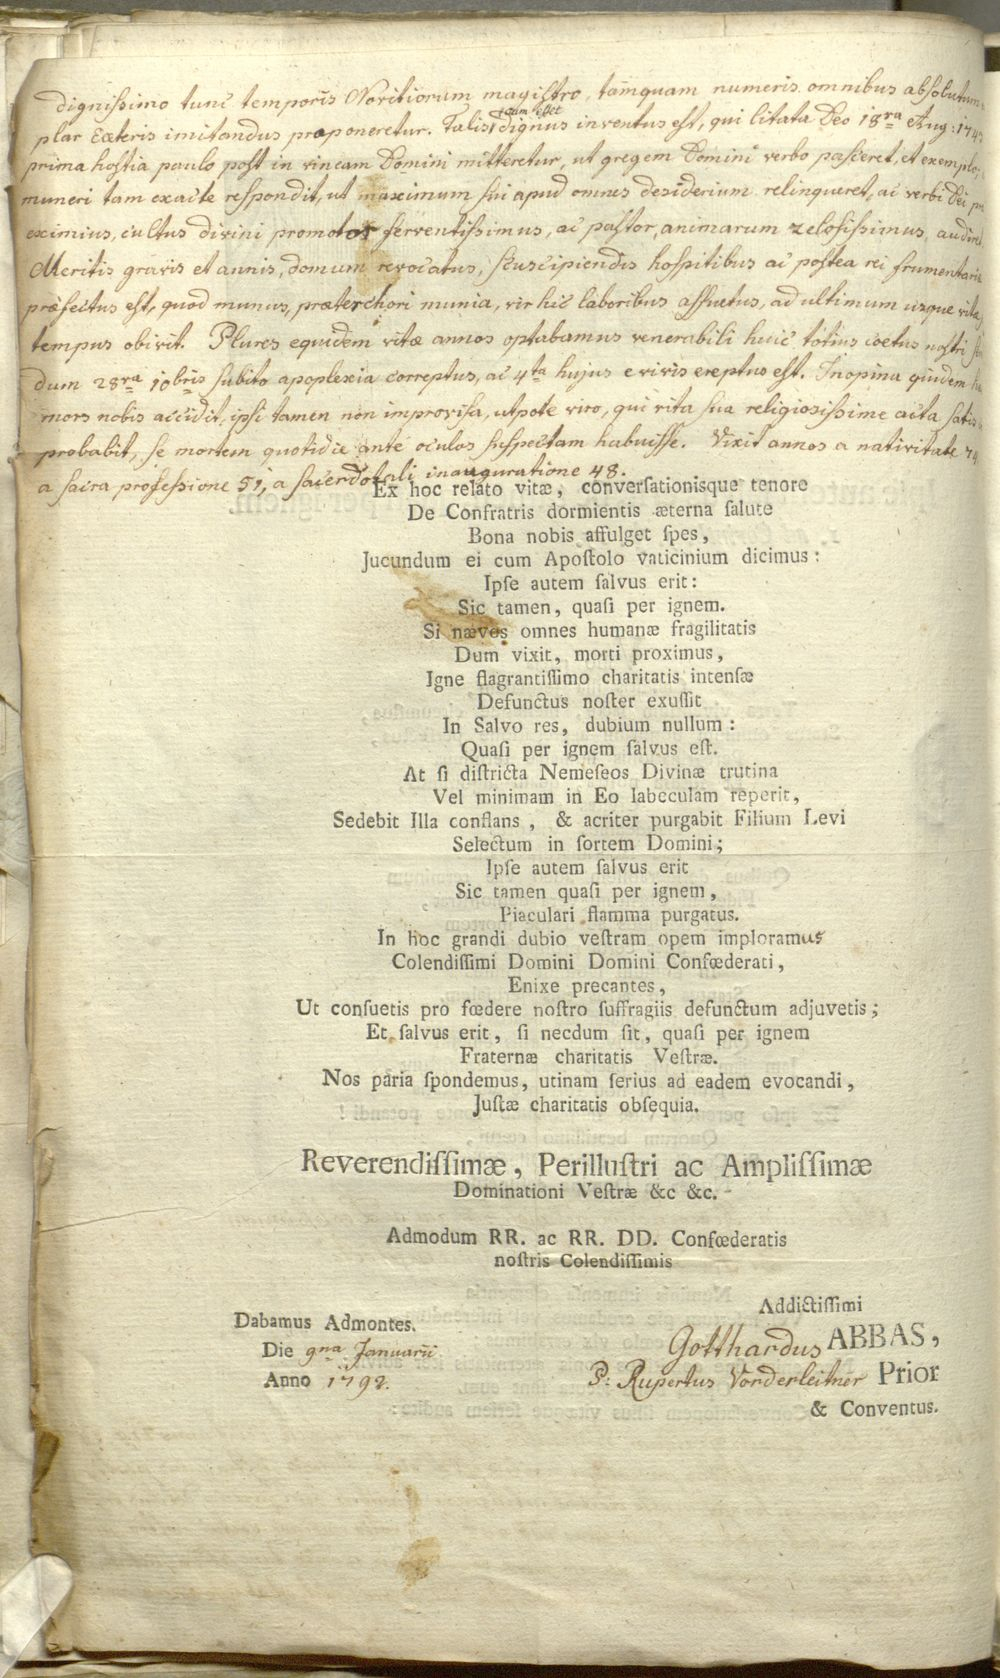 dignissimo tunc temporis Novitiorum magistro, tamquam numeris omnibus absolutum
plar Exteris imitandus proponeretur. Talis cum esset dignus inventus est, qui litata Deo 18va Aug: 1749
prima hostia paulo post in vineam Domini mitteretur, ut gregem Domini verbo pasceret, et exemplo,
muneri tam exacte respondit, ut maximum sui apud omnes desiderium relinqueret, ac verbi Dei
eximius, cultus divini promotor ferventissimus, ac pastor animarum zelosissimus audiret.
Meritis gravis et annis, domum revocatus, suscipiendis hospitibus ac postea rei frumentariæ
præfectus est, quod munus, præter chori munia, vir hic laboribus assuetus, ad ultimum usque vitæ
tempus obivit. Plures equidem vitæ annos optabamus venerabili huic totius coetus nostri
dum 28va 10bris subito apoplexia correptus, ac 4ta hujus e vivis ereptus est. Inopina quidem hæc
mors nobis accidit, ipsi tamen non improvisa, utpote viro, qui vita sua religiosissime acta satis
probabit, se mortem quotidie ante oculos suspectam habuisse. Vixit annos a nativitate 74
a sacra professione 51, a sacerdotali inauguratione 48.
Ex hoc relato vitæ, conversationisque tenore
De Confratris dormientis æterna salute
Bona nobis affulget spes,
Jucundum ei cum Apostolo vaticinium dicimus:
Ipse autem salvus erit:
Sic tamen, quasi per ignem.
Si nævos omnes humanæ fragilitatis
Dum vixit, morti proximus,
Igne flagrantissimo charitatis intensæ
Defunctus noster exussit
In Salvo res, dubium nullum:
Quasi per ignem salvus est.
At si districta Nemeseos Divinæ trutina
Vel minimam in Eo labeculam reperit,
Sedebit Illa conflans, & acriter purgabit Filium Levi
Selectum in sortem Domini;
Ipse autem salvus erit
Sic tamen quasi per ignem,
Piaculari flamma purgatus.
In hoc grandi dubio vestram opem imploramus
Colendissimi Domini Domini Confœderati,
Enixe precantes,
Ut consuetis pro fœdere nostro suffragiis defunctum adjuvetis;
Et salvus erit, si necdum sit, quasi per ignem
Fraternæ charitatis Vestræ.
Nos paria spondemus, utinam serius ad eadem evocandi,
Justæ charitatis obsequia.
Reverendissimæ, Perillustri ac Amplissimæ
Dominationi Vestræ &c &c.
Admodum RR. ac RR. DD. Confœderatis
nostris Colendissimis
Addictissimi
Dabamus Admontes.
Gotthardus ABBAS,
Die 9na Januarii
P: Rupertus Vorderleitner Prior
Anno 1798.
& Conventus.